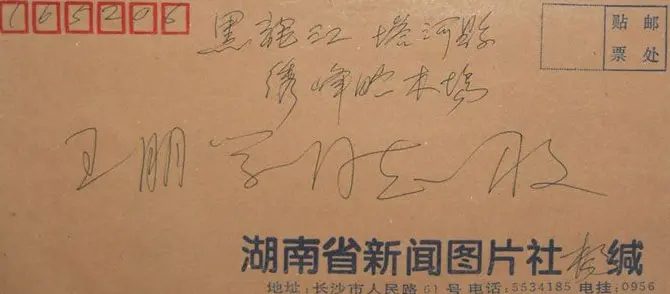 165205
贴邮
票处
黑龍江 塔河縣
绣峰贮木場
王朋同志收
湖南省新闻图片社缄
地址:长沙市人民路61号 电话:5534185 电挂:0956